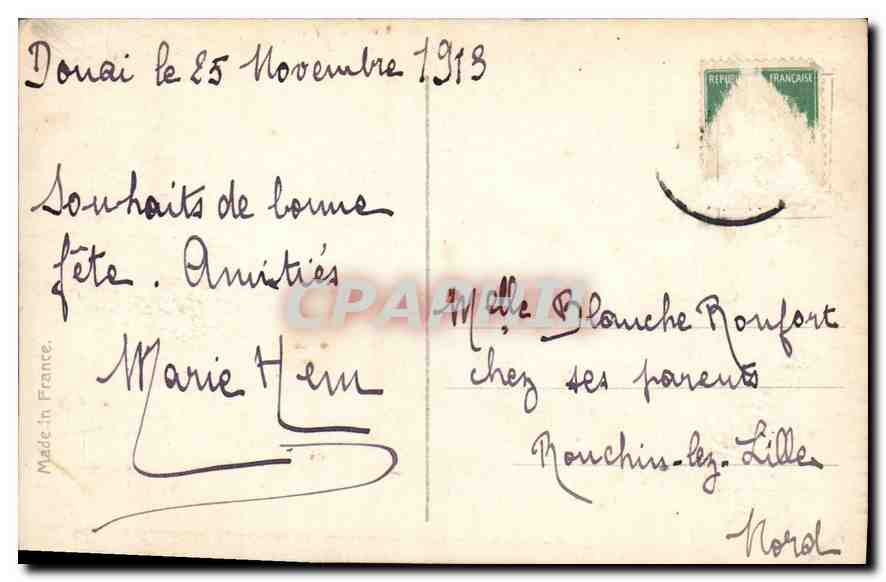 Douai le 25 Novembre 1913
REPUB FRANÇAISE
Souhaits de bonne
fête. Amitiés
Marie Hem
Melle Blanche Roufort
chez ses parents
Ronchin-lez-Lille
Nord
Made in France.
CPAPHIL